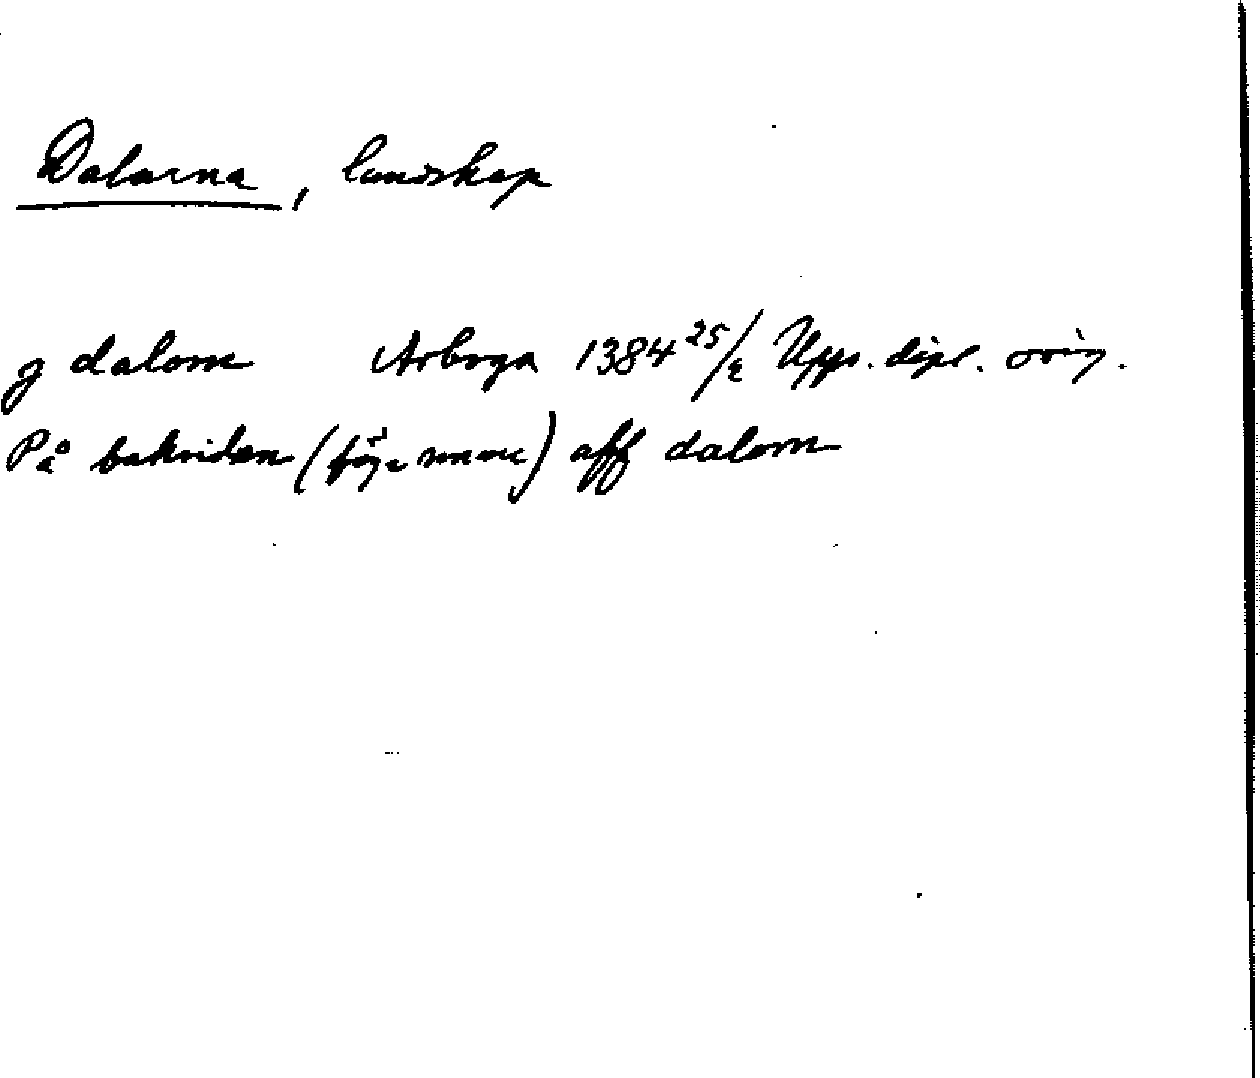 Dalarna, landskap
j dalom Arboga 1384 25/2 Upps. dipl. orig.
På baksidan (samme) aff dalom